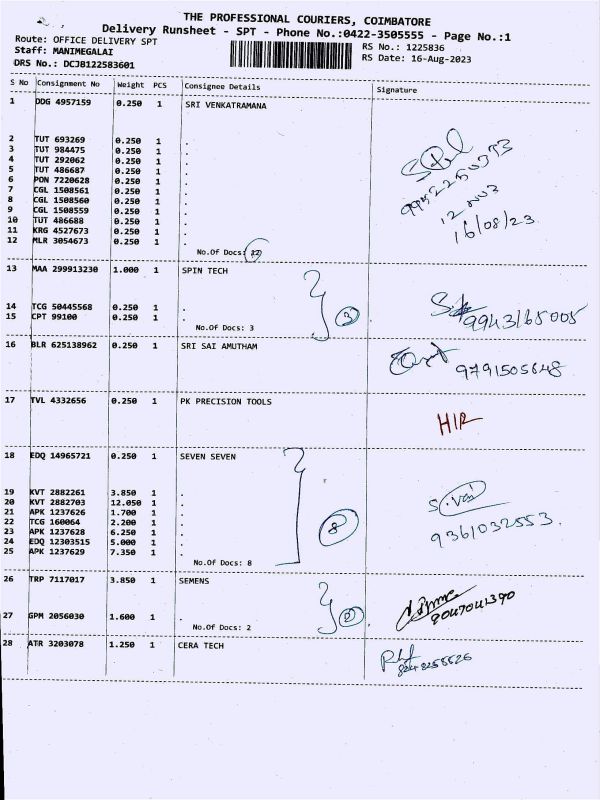 THE PROFESSIONAL COURIERS, COIMBATORE
Delivery Runsheet - SPT - Phone No.:0422-3505555 - Page No.:1
Route: OFFICE DELIVERY SPT
RS No.: 1225836
Staff: MANIMEGALAI
RS Date: 16-Aug-2023
DRS No.: DCJB122583601
S No Consignment No Weight PCS Consignee Details Signature
1 DDG 4957159 0.250 1 SRI VENKATRAMANA
2 TUT 693269 0.250 1 .
3 TUT 984475 0.250 1 .
4 TUT 292062 0.250 1 .
5 TUT 486687 0.250 1 .
6 PON 7220628 0.250 1 .
7 CGL 1508561 0.250 1 .
8 CGL 1508560 0.250 1 .
9 CGL 1508559 0.250 1 .
10 TUT 486688 0.250 1 .
11 KRG 4527673 0.250 1 .
12 MLR 3054673 0.250 1 .
16/08/23
No.Of Docs: 12
13 MAA 299913230 1.000 1 SPIN TECH
14 TCG 50445568 0.250 1 .
15 CPT 99100 0.250 1 .
3
9943165005
No.Of Docs: 3
16 BLR 625138962 0.250 1 SRI SAI AMUTHAM
9791505648
17 TVL 4332656 0.250 1 PK PRECISION TOOLS
18 EDQ 14965721 0.250 1 SEVEN SEVEN
19 KVT 2882261 3.850 1 .
20 KVT 2882703 12.050 1 .
21 APK 1237626 1.700 1 .
22 TCG 160064 2.200 1 .
23 APK 1237628 6.250 1 .
24 EDQ 12303515 5.000 1 .
25 APK 1237629 7.350 1 .
8
9361032553.
No.Of Docs: 8
26 TRP 7117017 3.850 1 SEMENS
27 GPM 2056030 1.600 1 .
2
No.Of Docs: 2
28 ATR 3203078 1.250 1 CERA TECH